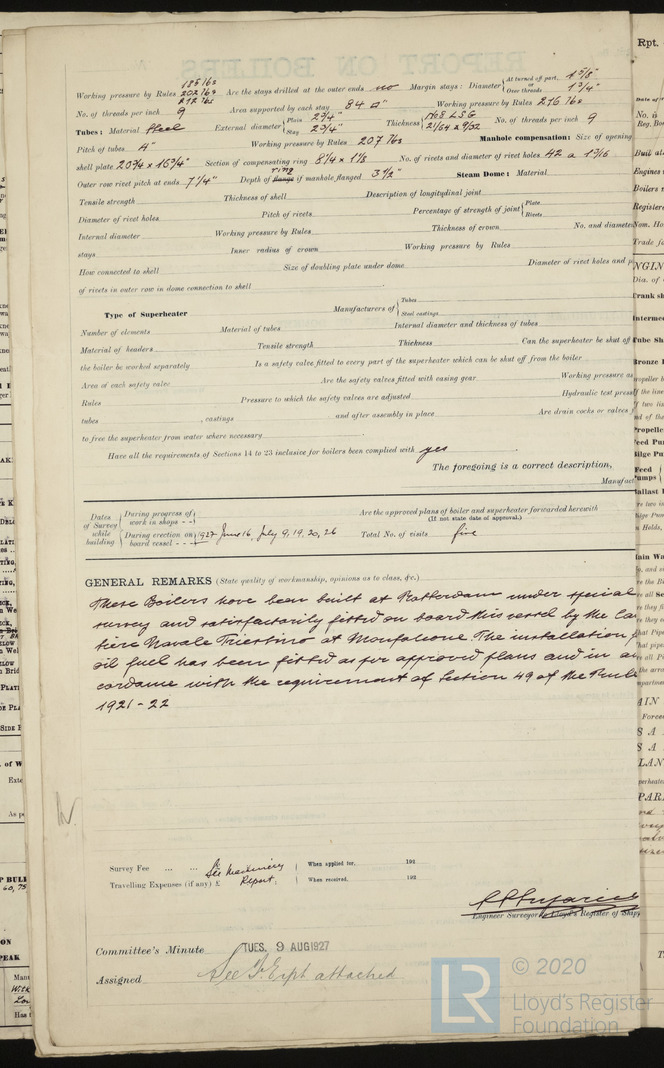 REPORT ON BOILERS
185 lbs
Working pressure by Rules 202 lbs Are the stays drilled at the outer ends no Margin stays: Diameter At turned off part, 1 5/8" Over threads 1 3/4"
212 lbs
No. of threads per inch 9 Area supported by each stay 84 □" Working pressure by Rules 216 lbs
Tubes: Material Steel External diameter Plain 2 3/4" Stay 2 3/4" Thickness No 8 L.S.G. 21/64 & 9/32 No. of threads per inch 9
Pitch of tubes 4" Working pressure by Rules 207 lbs Manhole compensation: Size of opening
shell plate 20 3/4 x 15 3/4" Section of compensating ring 8 1/4 x 1 1/8 No. of rivets and diameter of rivet holes 42 a 1 3/16
Outer row rivet pitch at ends 7 1/4" Depth of flange ring if manhole flanged 3 1/2" Steam Dome: Material
Tensile strength Thickness of shell Description of longitudinal joint
Diameter of rivet holes Pitch of rivets Percentage of strength of joint Plate Rivets
Internal diameter Working pressure by Rules Thickness of crown No. and diameter
stays Inner radius of crown Working pressure by Rules
How connected to shell Size of doubling plate under dome Diameter of rivet holes and p
of rivets in outer row in dome connection to shell
Type of Superheater Manufacturers of Tubes Steel castings
Number of elements Material of tubes Internal diameter and thickness of tubes
Material of headers Tensile strength Thickness Can the superheater be shut off
the boiler be worked separately Is a safety valve fitted to every part of the superheater which can be shut off from the boiler
Area of each safety valve Are the safety valves fitted with easing gear Working pressure as
Rules Pressure to which the safety valves are adjusted Hydraulic test press
tubes , castings and after assembly in place Are drain cocks or valves
to free the superheater from water where necessary
Have all the requirements of Sections 14 to 23 inclusive for boilers been complied with yes
The foregoing is a correct description,
Manufact
Dates of Survey while building During progress of work in shops - - Are the approved plans of boiler and superheater forwarded herewith (If not state date of approval.)
During erection on board vessel - - - 1927 June 16, July 9, 19, 20, 26 Total No. of visits five
GENERAL REMARKS (State quality of workmanship, opinions as to class, &c.)
These Boilers have been built at Rotterdam under special
survey and satisfactorily fitted on board this vessel by the Can
tiere Navale Triestino at Monfalcone. The installation f
oil fuel has been fitted as per approved plans and in ac
cordance with the requirement of Section 49 of the Rule
1921-22
Survey Fee ... ... £ See Machinery When applied for, 192
Travelling Expenses (if any) £ Report. When received, 192
Engineer Surveyor to Lloyd's Register of Ship
Committee's Minute TUES. 9 AUG 1927
Assigned See attached
LR © 2020
Lloyd's Register
Foundation